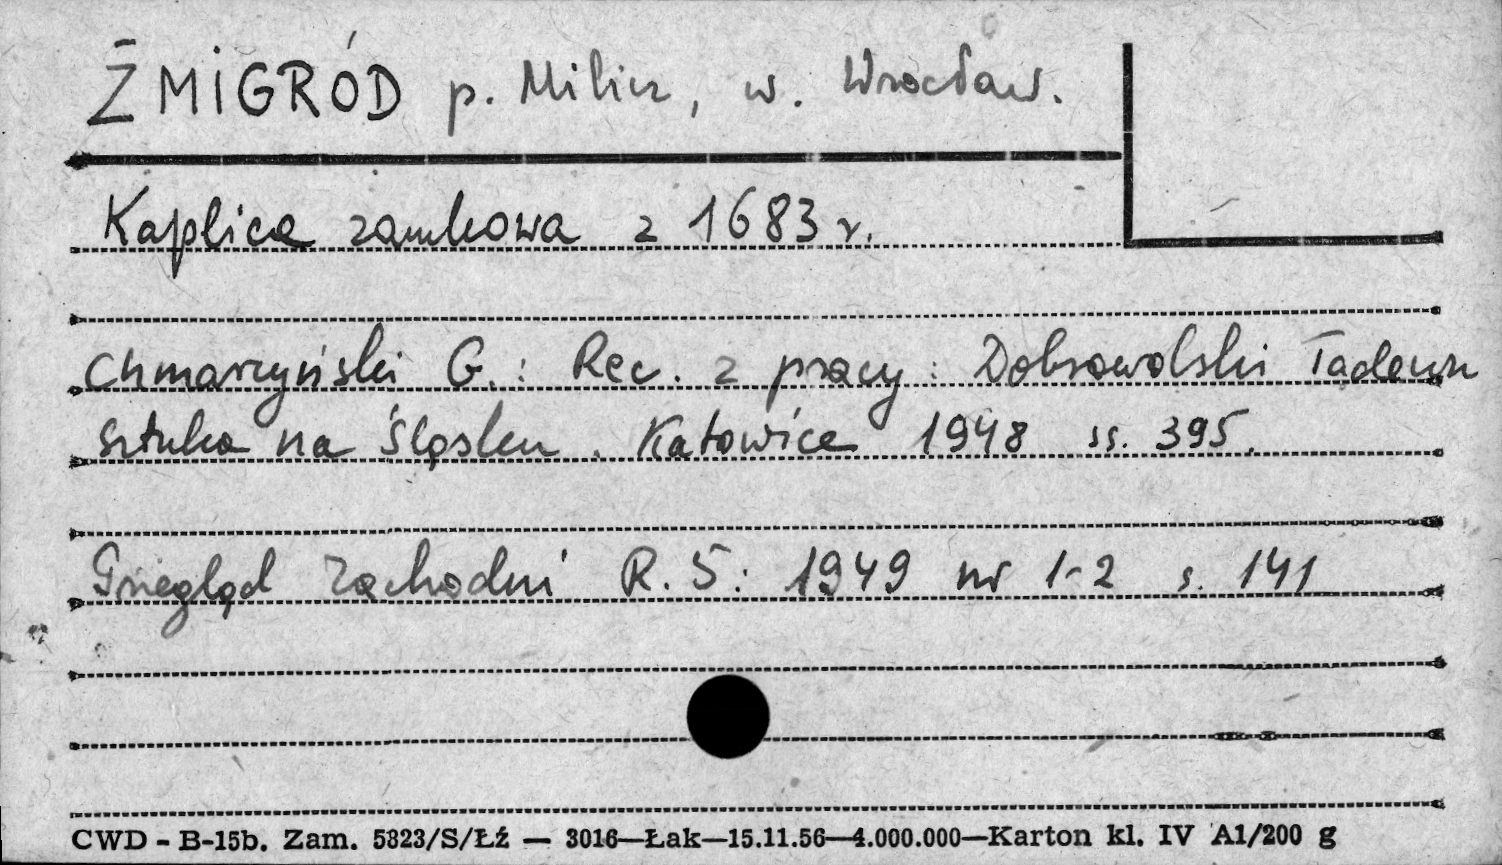 ŻMIGRÓD p. Milicz, w. Wrocław.
Kaplica zamkowa z 1683 r.
Chmarzyński G.: Rec. z pracy: Dobrowolski Tadeusz
Sztuka na Śląsku. Katowice 1948 ss. 395.
Przegląd Zachodni R. 5: 1949 nr 1-2 s. 141
CWD - B-15b. Zam. 5323/S/Łź — 3016—Łak—15.11.56—4.000.000—Karton kl. IV A1/200 g